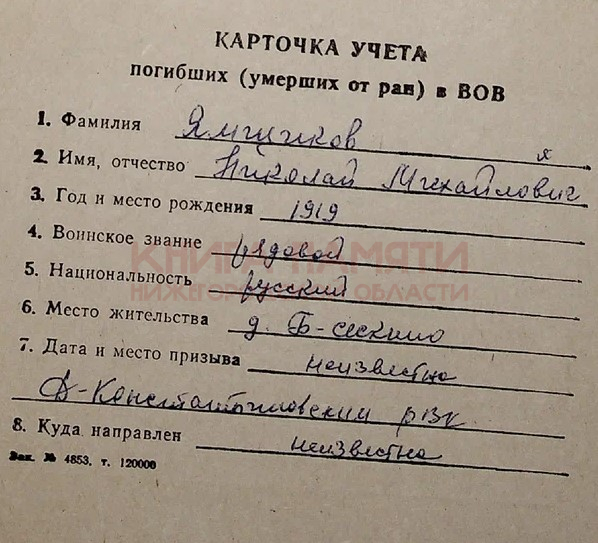 КАРТОЧКА УЧЕТА
погибших (умерших от ран) в ВОВ
1. Фамилия Ямщиков
я
2. Имя, отчество Николай Михайлович
3. Год и место рождения 1919
4. Воинское звание рядовой
5. Национальность русский
КНИГА ПАМЯТИ
НИЖЕГОРОДСКОЙ ОБЛАСТИ
6. Место жительства д. Б-сескино
7. Дата и место призыва неизвестно
Д-Константиновский рвк
8. Куда направлен неизвестно
Зак. № 4853, т. 120000